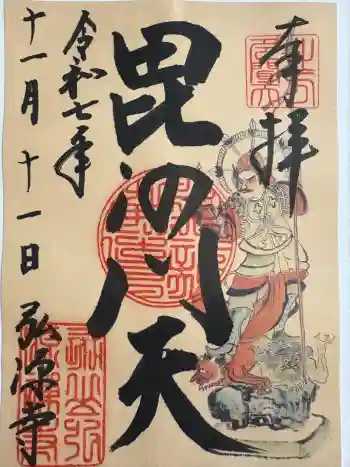 奉拝
毘沙門天
令和七年
十一月十一日
弘源寺